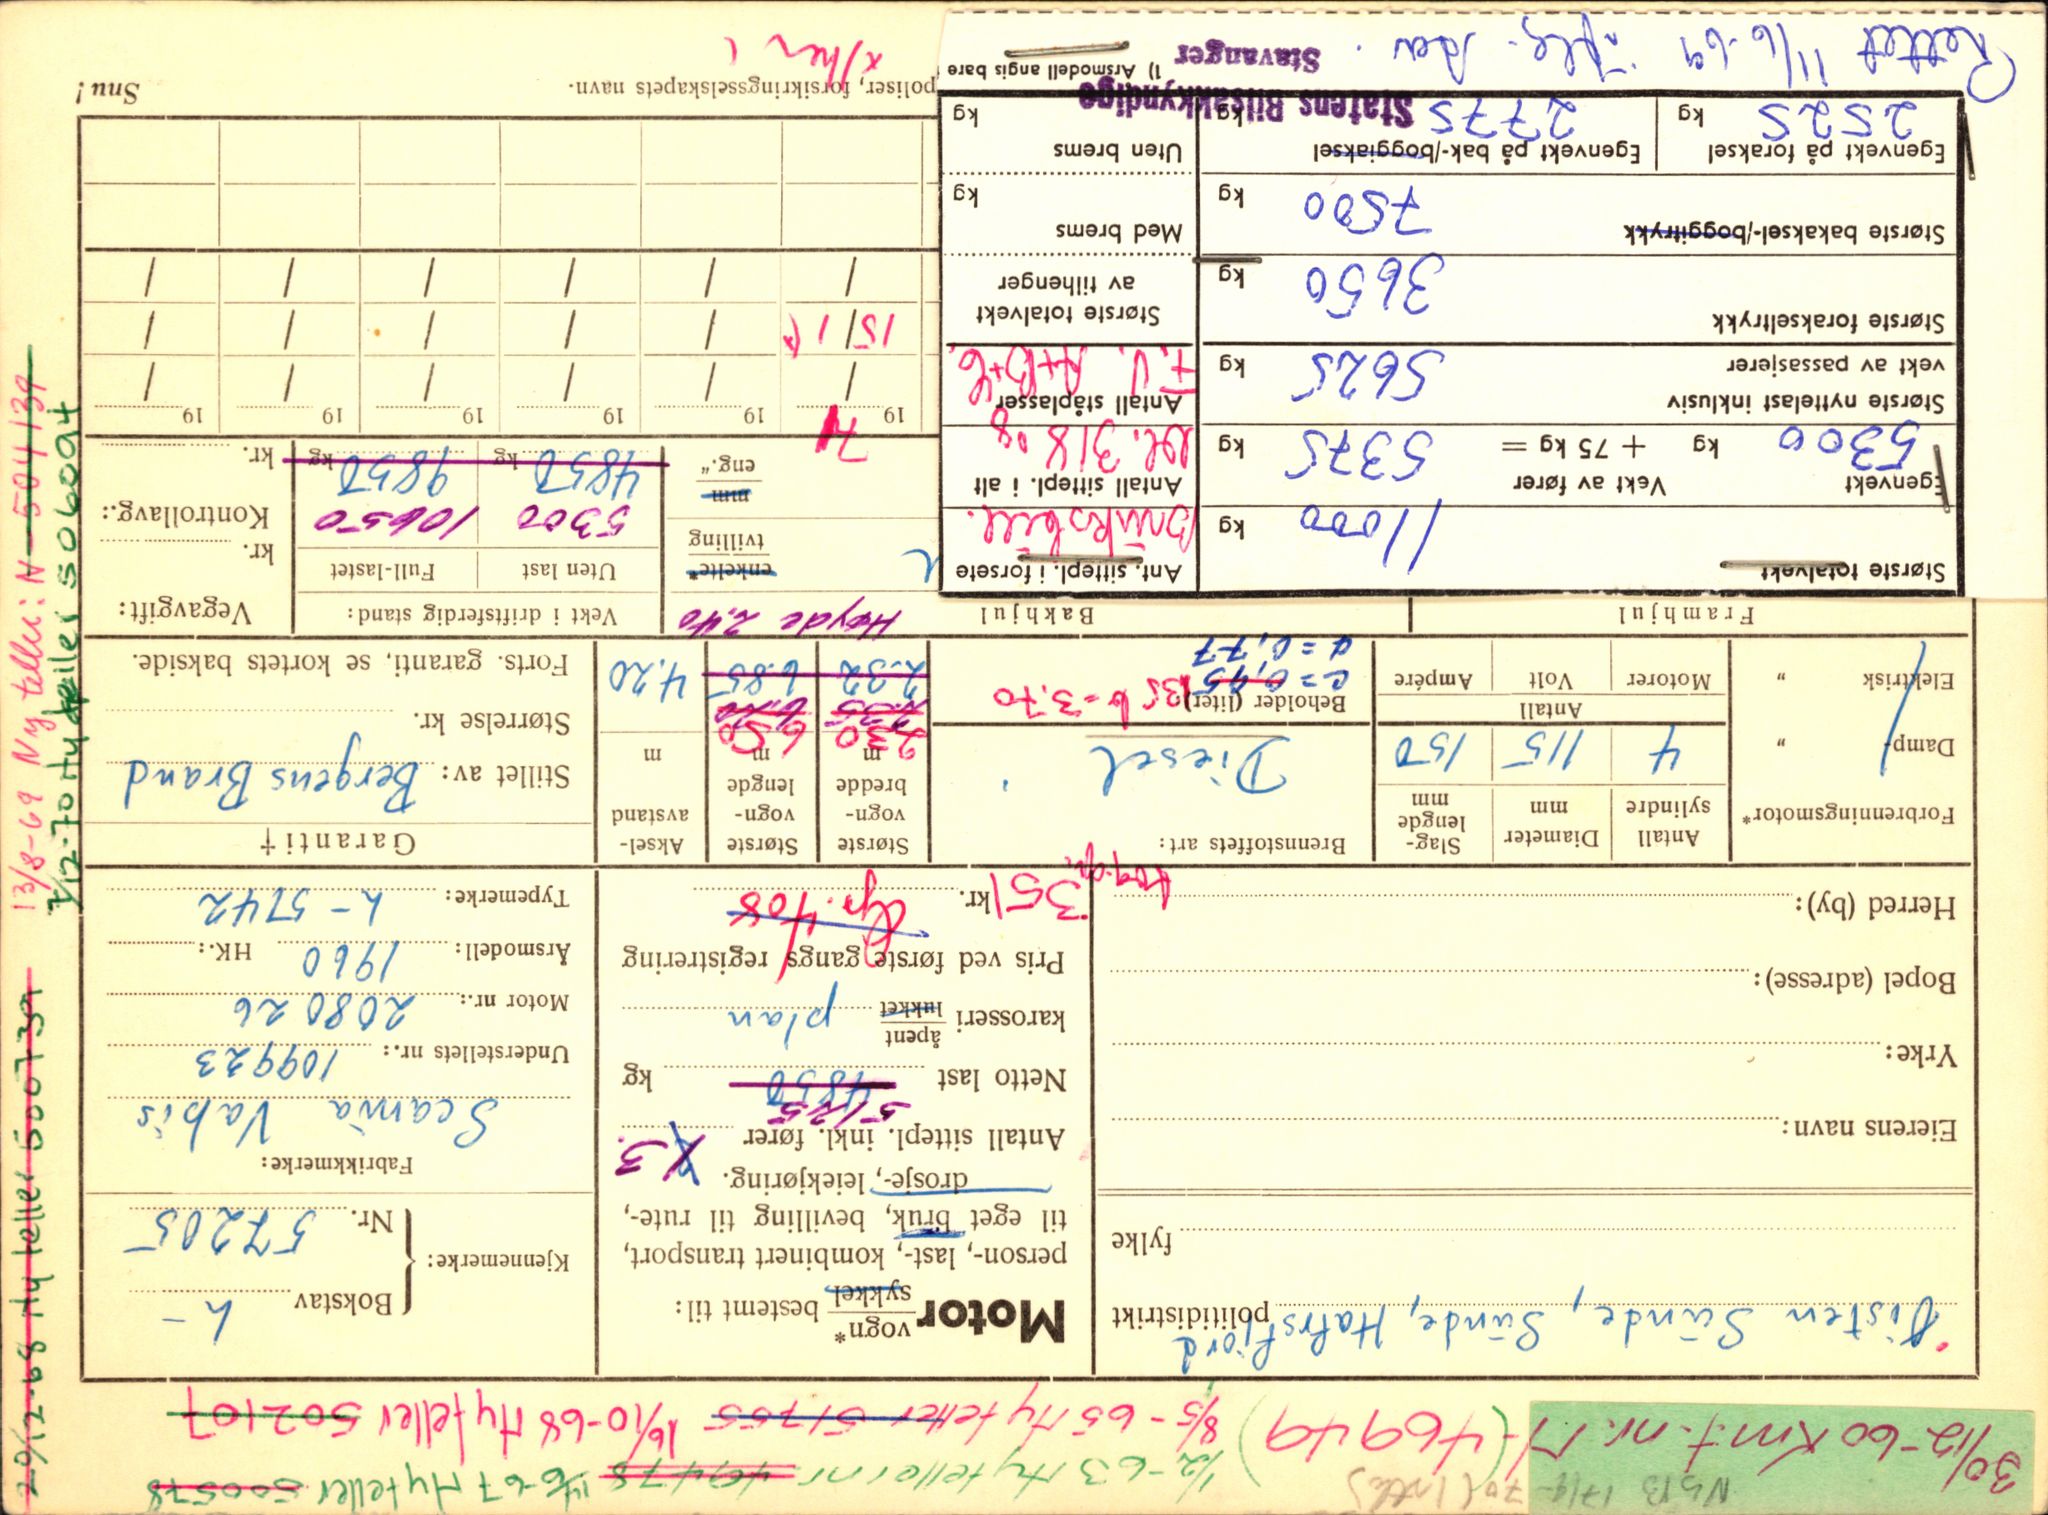 30/12-60 Km.t. nr. N-(46949)
1/2-63 Ny teller nr. 49478
1/6-67 Ny teller 500578
8/5-65 Ny teller 51755
16/10-68 Ny teller 502107
29/12-68 Ny teller 500739
13/8-69 Ny teller: N-504139
1/12-70 Ny teller 506094
Øisten Sunde, Sunde, Hafrsfjord
politidistrikt
fylke
Eierens navn:
Yrke:
Bopel (adresse):
Herred (by):
Motor vogn* sykkel bestemt til:
person-, last-, kombinert transport,
til eget bruk, bevilling til rute-,
drosje-, leiekjøring.
Antall sittepl. inkl. fører 3.
5125
Netto last 4850 kg
åpent lukket karosseri plan
Pris ved første gangs registrering
kr. 408
351
Kjennemerke: Bokstav L-
Nr. 57205
Fabrikkmerke:
Scania Vabis
Understellets nr.: 109923
Motor nr.: 208026
Årsmodell: 1960 HK.:
Typemerke: L-5742
Forbrenningsmotor*
Antall sylindre
Diameter mm
Slag-lengde mm
Damp- „
4 115 150
Elektrisk „
Antall
Motorer Volt Ampére
Brennstoffets art:
Diesel
Beholder (liter) 135 b=3.70
c=0,95
a=0,77
Største vogn-bredde m
2.30
2.35
2.32
Største vogn-lengde m
6.50
6.85
Aksel-avstand m
4.20
Garanti †
Stillet av: Bergens Brand
Størrelse kr.
Forts. garanti, se kortets bakside.
Framhjul
Bakhjul
Høyde 2,40
enkelte* tvilling
mm eng.“
Vekt i driftsferdig stand:
Uten last Full-lastet
5300 10650
4850 kg 9850 kg
Vegavgift:
kr.
Kontrollavg.:
kr.
19 71 19 19 19 19 19
15/1 x)
poliser, forsikringsselskapets navn.
Snu!
Største totalvekt 11000 kg
Egenvekt 5300 kg Vekt av fører + 75 kg = 5375 kg
Største nyttelast inklusiv vekt av passasjerer 5625 kg
Største forakseltrykk 3650 kg
Største bakaksel-/boggitrykk 7500 kg
Egenvekt på foraksel 2525 kg
Egenvekt på bak-/boggiaksel 2775 kg
Ant. sittepl. i forsete
Bruksbell.
Antall sittepl. i alt
Antall ståplasser
F.V. A+B+C,
Største totalvekt av tilhenger
Med brems kg
Uten brems kg
1) Årsmodell angis bare
Statens Bilsakkyndige
Stavanger
Rettet 11/6-69